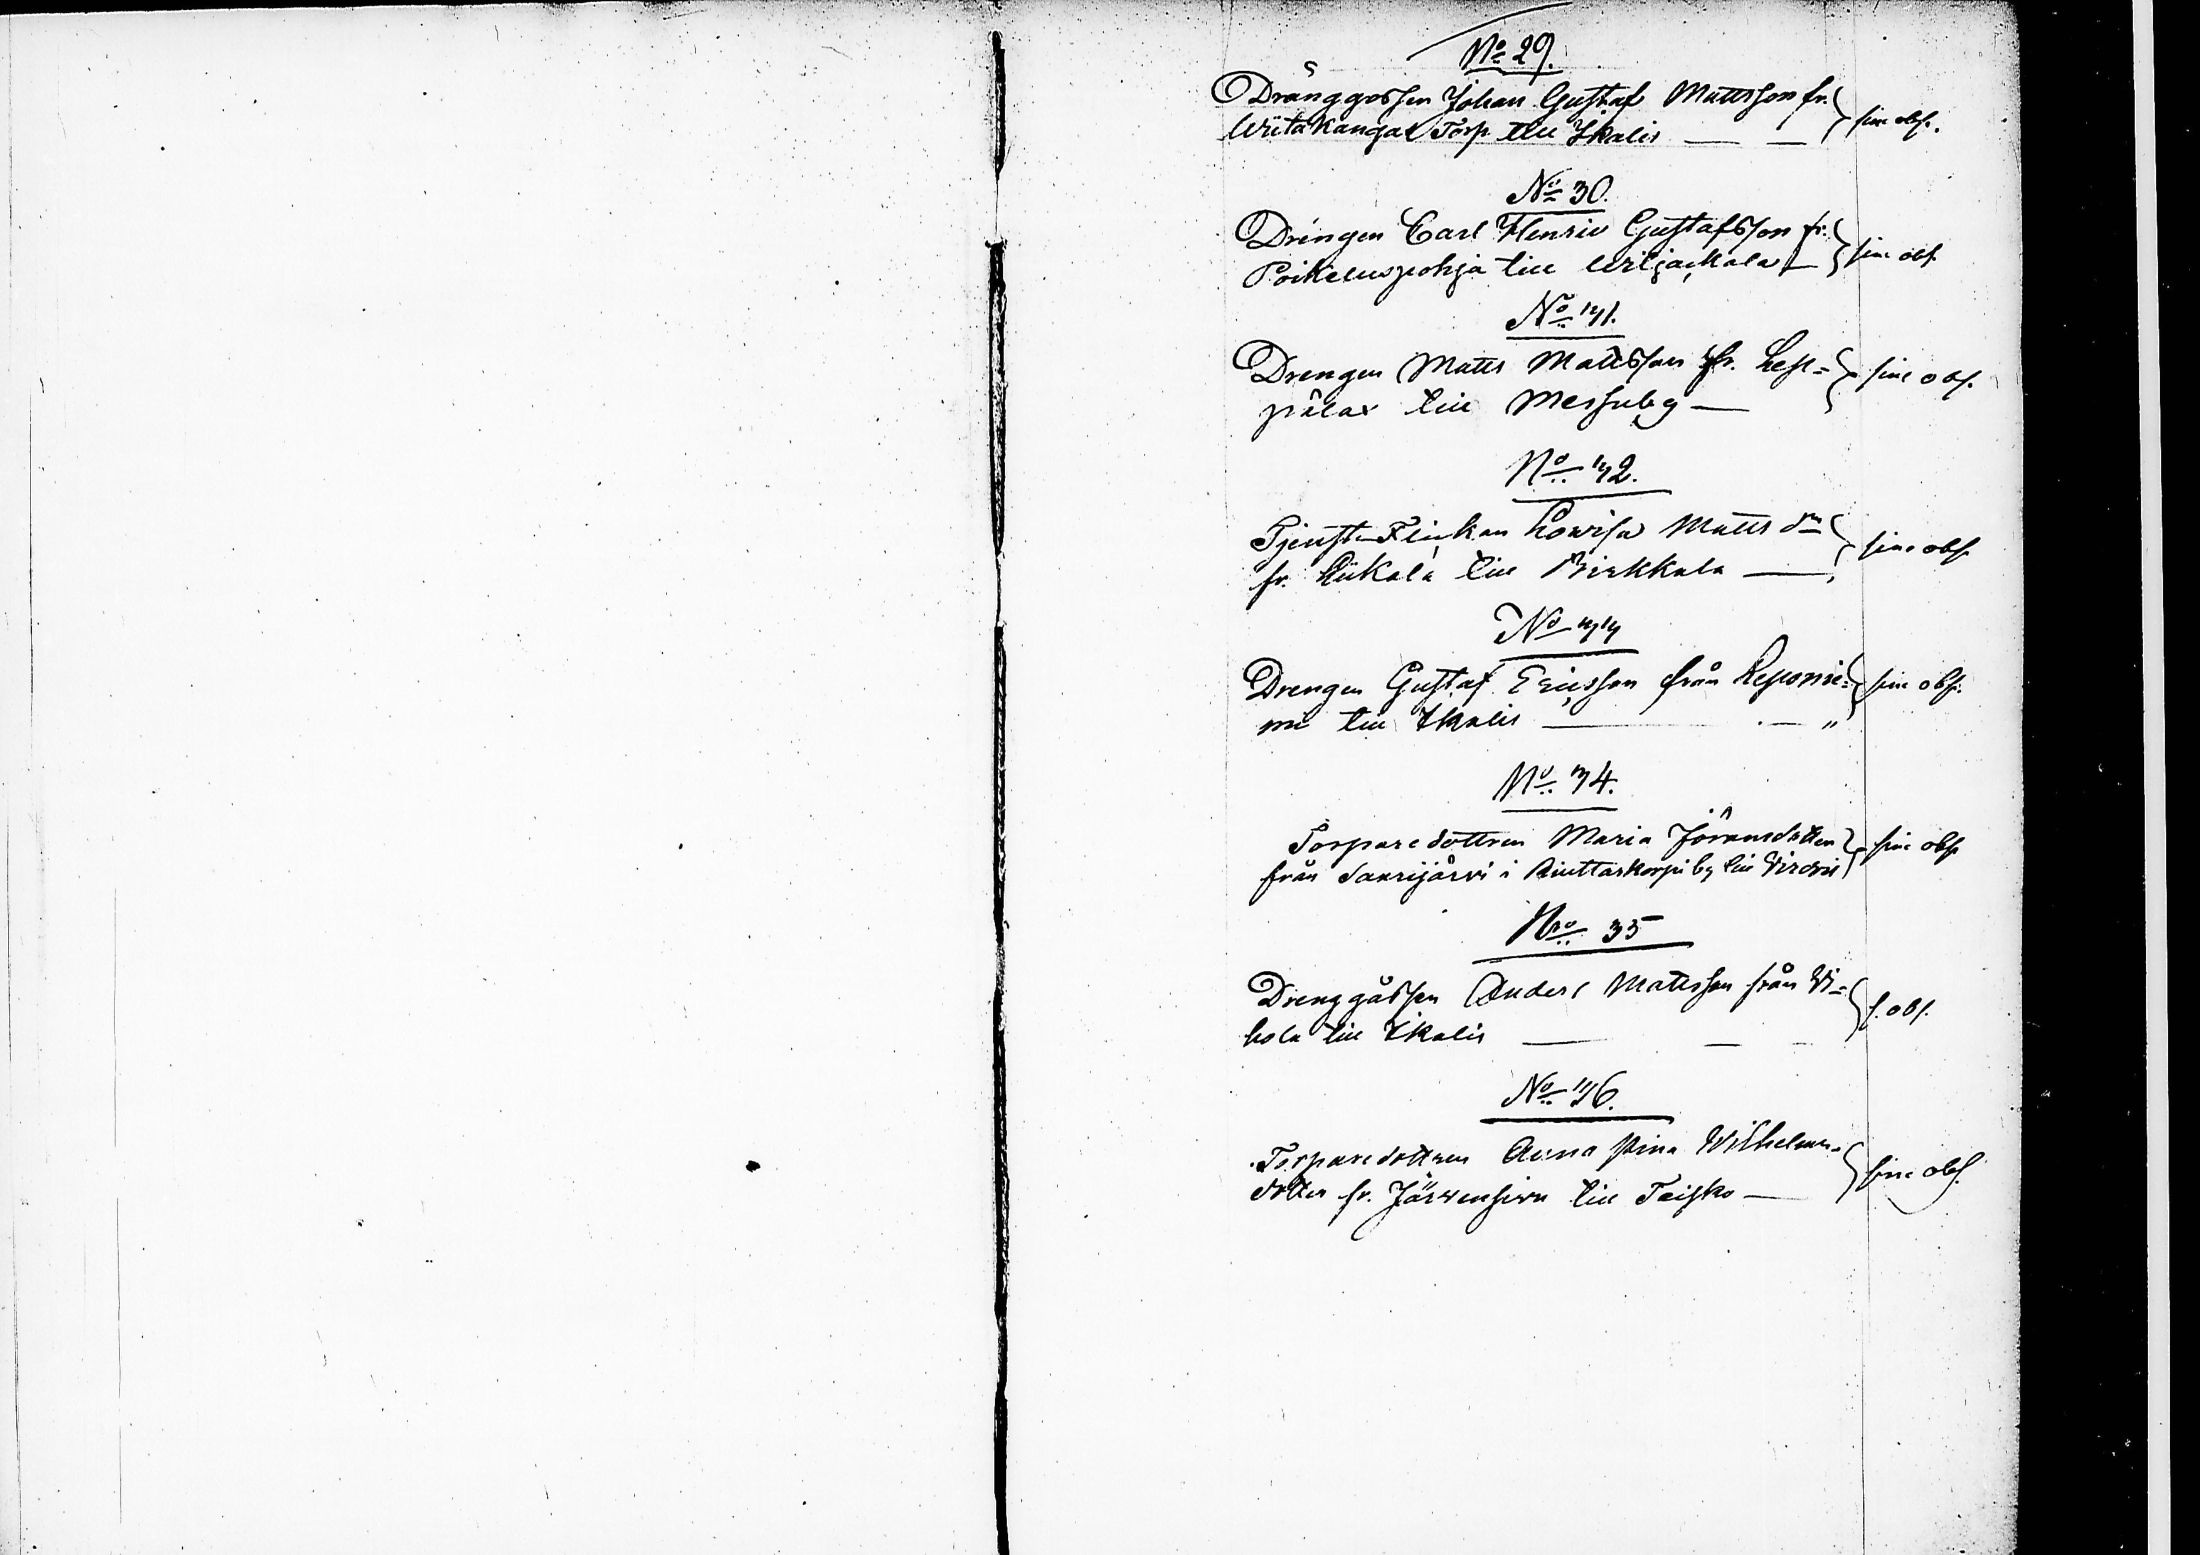 No 29.
Dränggossen Johan Gustaf Mattsson fr.
Wiitakangas Torp till Ikalis — — sine obs.
No 30.
Drängen Carl Henric Gustafsson fr.
Poikeluspohja till Wiljackala — sine obs.
No 31.
Drengen Matts Mattsson fr. Lep=
pälax till Messuby — sine obs.
No 32.
Tjenst-Flickan Lowisa Matts dr
fr. Liikala till Birkkala — sine obs.
No 33
Drengen Gustaf Ericsson från Reponie=
mi till Ikalis — — " sine obs.
No 34.
Torparedottren Maria Jöransdotter
från Saarijärvi i Riuttaskorpi by till Virdois sine obs.
Nro 35
Drenggåssen Anders Mattsson från Vi=
hola till Ikalis — — — s. obs.
No 36.
Torparedottren Anna Stina Wilhelms=
dotter fr. Järwensiwu till Teisko — sine obs.